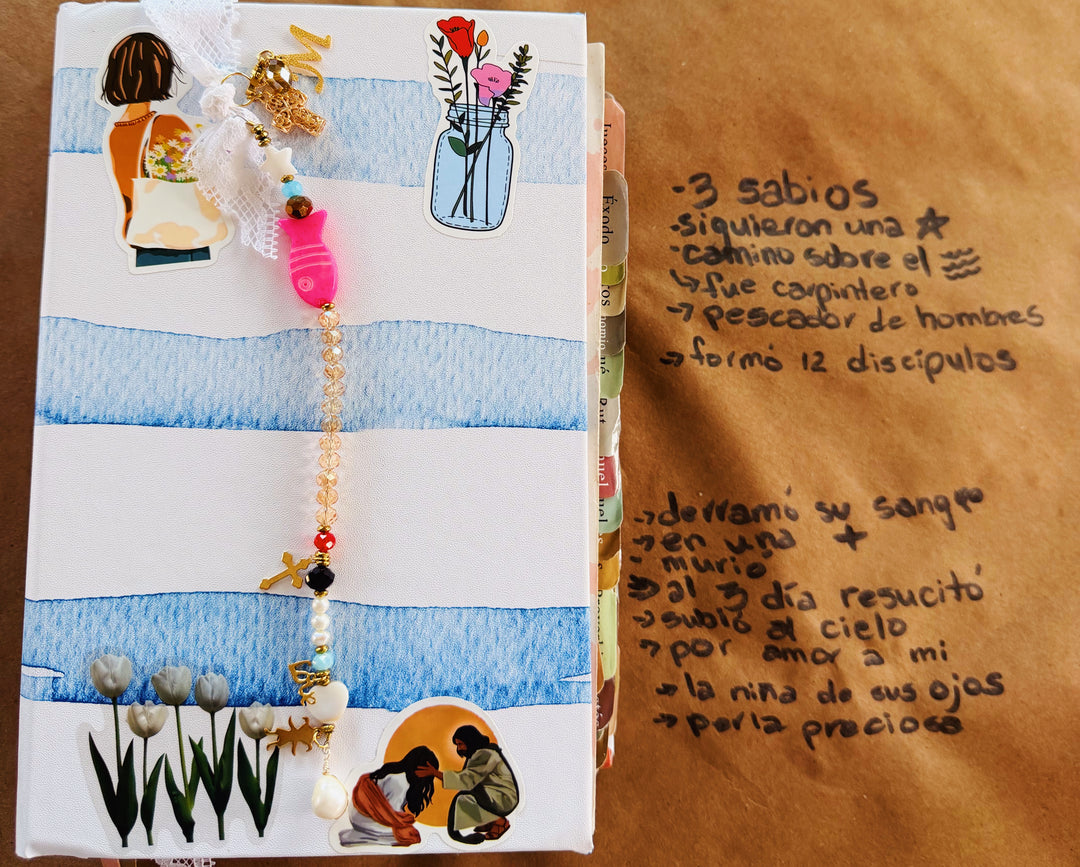 M
Éxodo
Rut
love
-3 sabios
-siguieron una ☆
-camino sobre el
↳fue carpintero
→pescador de hombres
→formó 12 discípulos
→derramó su sangre
→en una +
- murió
→al 3 día resucitó
→subió al cielo
→por amor a mi
→la niña de sus ojos
→perla preciosa